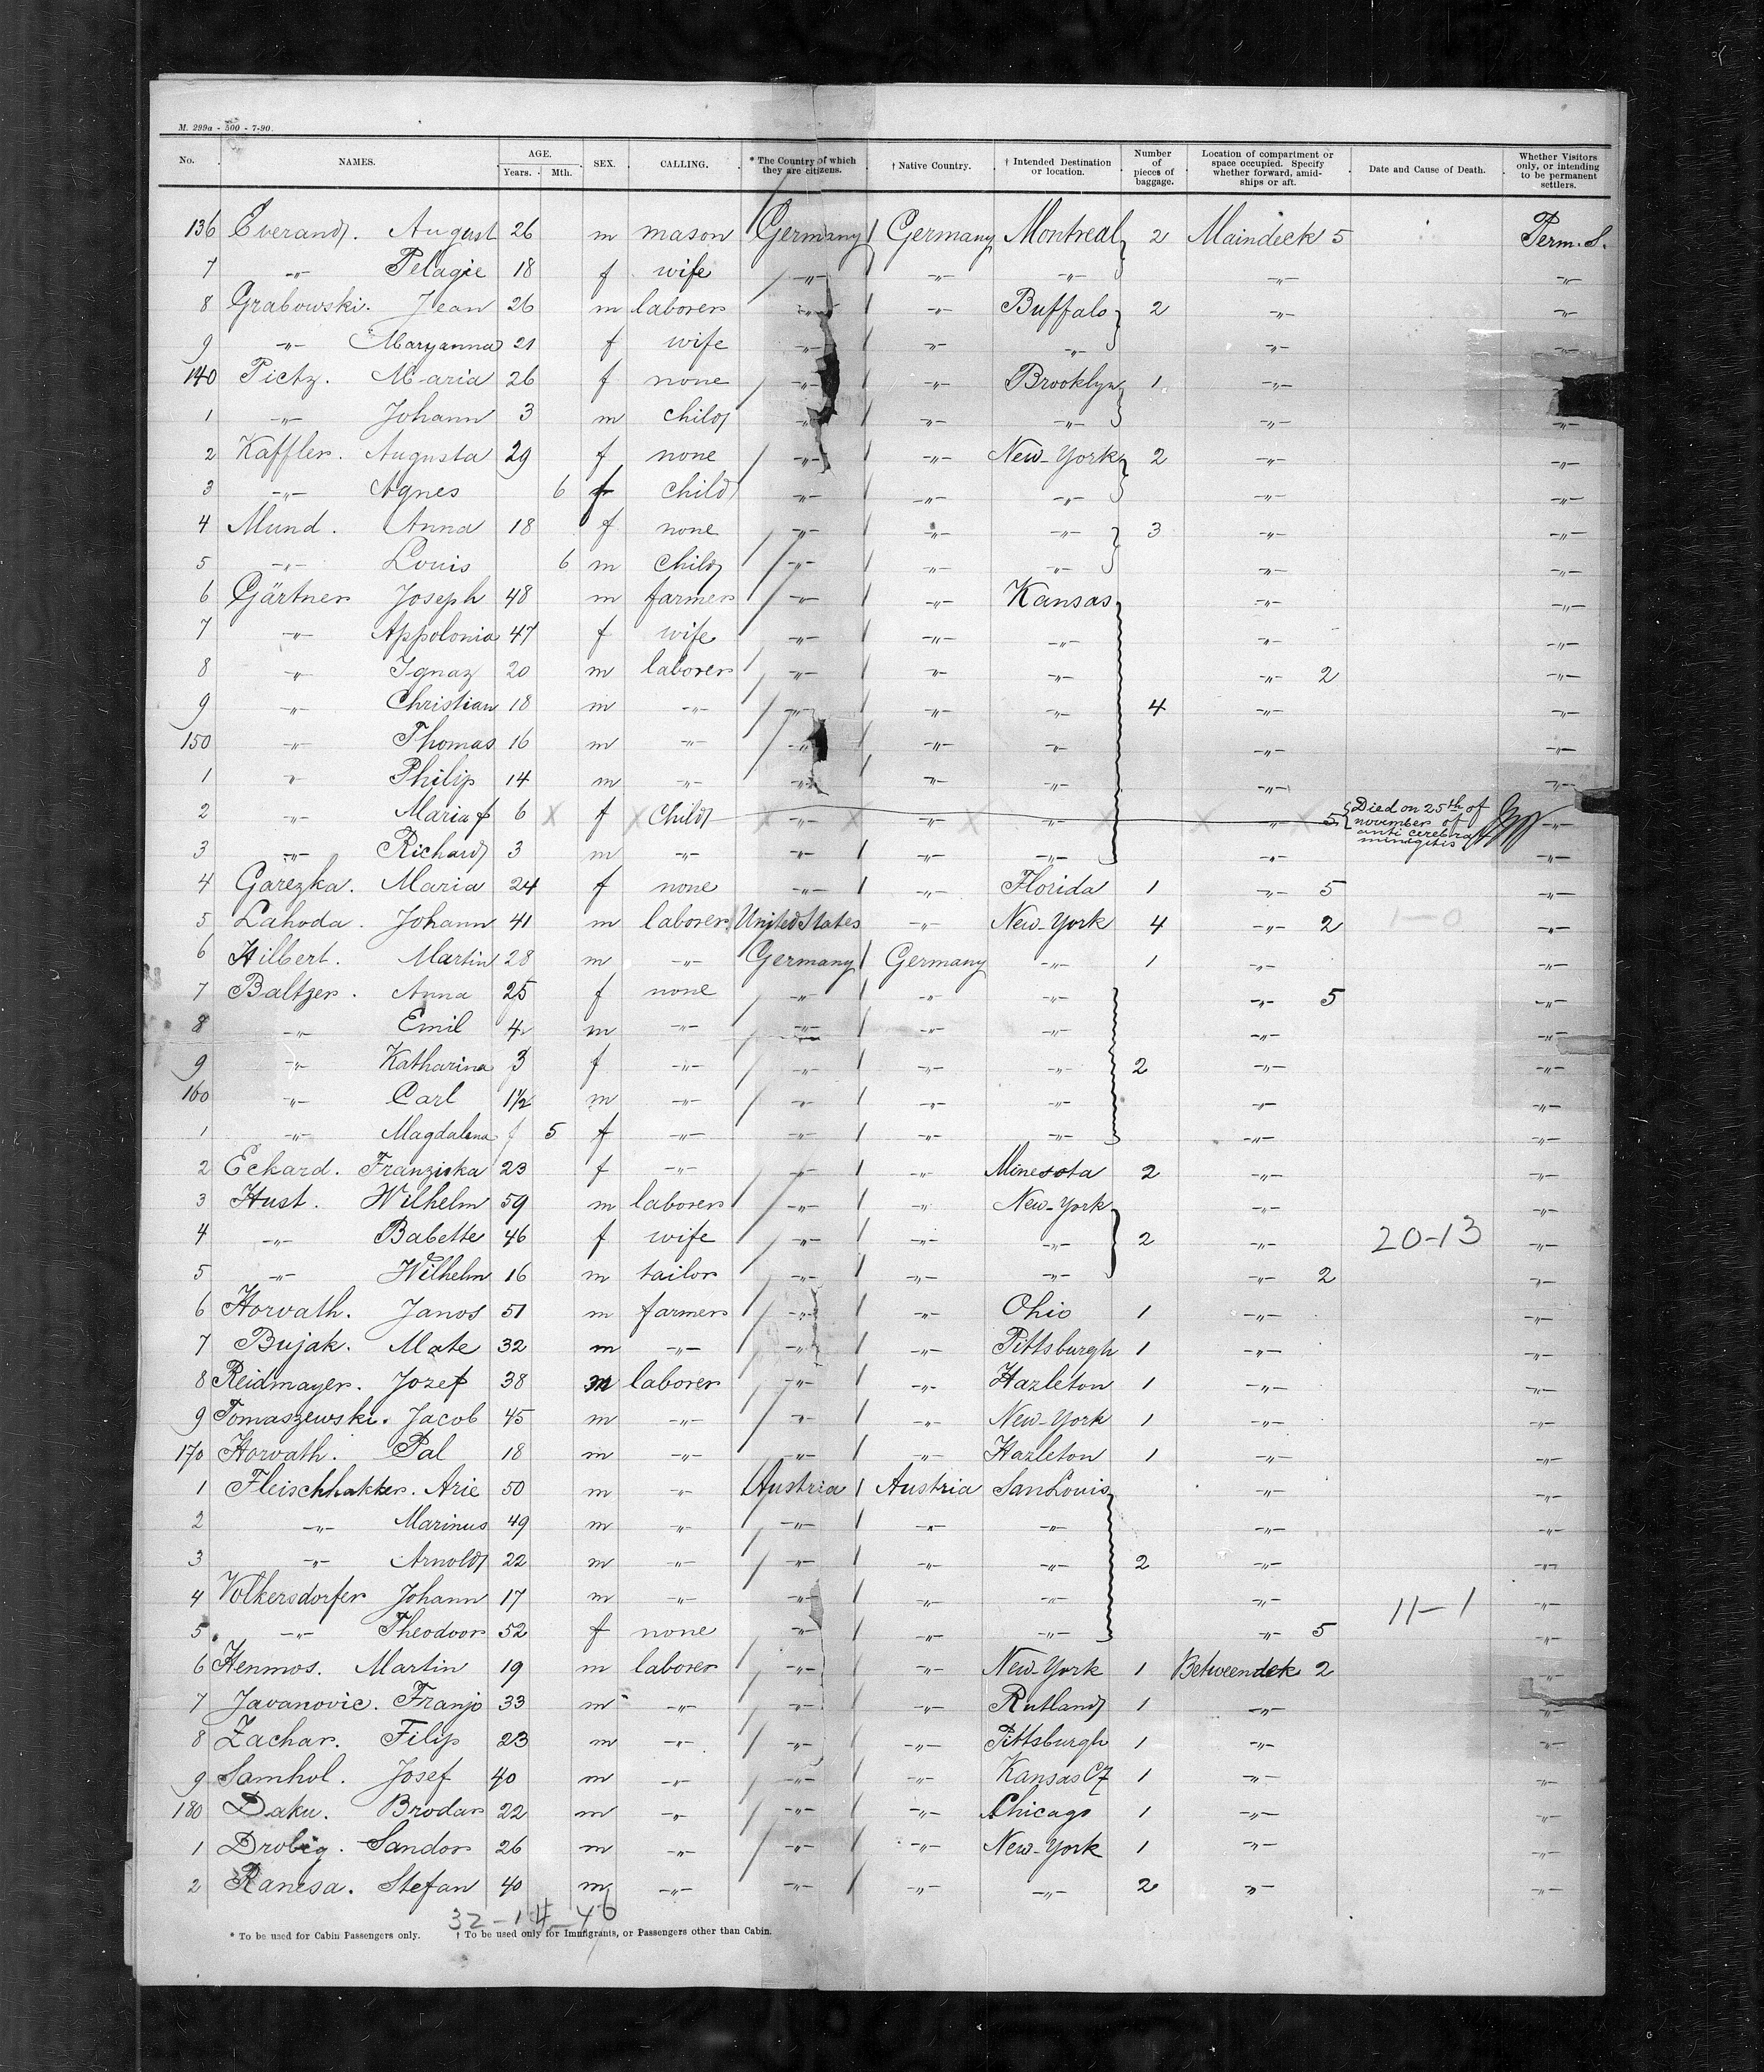 M. 299a - 500 - 7-90.
No. NAMES. AGE. Years. Mth. SEX. CALLING. * The Country of which they are citizens. † Native Country. † Intended Destination or location. Number of pieces of baggage. Location of compartment or space occupied. Specify whether forward, amidships or aft. Date and Cause of Death. Whether Visitors only, or intending to be permanent settlers.
136 Everand. August 26 m mason Germany Germany Montreal 2 Maindeck 5 Perm. S.
7 -"- Pelagie 18 f wife -"- -"- -"- -"- -"-
8 Grabowski. Jean 26 m laborer -"- -"- Buffalo 2 -"- -"-
9 -"- Maryanna 21 f wife -"- -"- -"- -"- -"-
140 Pietz. Maria 26 f none -"- -"- Brooklyn 1 -"-
1 -"- Johann 3 m child -"- -"- -"- -"- -"-
2 Kaffler. Augusta 29 f none -"- -"- New-York 2 -"- -"-
3 -"- Agnes 6 f child -"- -"- -"- -"- -"-
4 Mund. Anna 18 f none -"- -"- -"- 3 -"- -"-
5 -"- Louis 6 m child -"- -"- -"- -"- -"-
6 Gärtner Joseph 48 m farmer -"- -"- Kansas -"- -"-
7 -"- Appolonia 47 f wife -"- -"- -"- -"- -"-
8 -"- Ignaz 20 m laborer -"- -"- -"- -"- 2 -"-
9 -"- Christian 18 m -"- -"- -"- -"- 4 -"- -"-
150 -"- Thomas 16 m -"- -"- -"- -"- -"- -"-
1 -"- Philip 14 m -"- -"- -"- -"- -"- -"-
2 -"- Maria 6 f Child -"- -"- -"- -"- 5 Died on 25th of november of anti cerebral minigitis -"-
3 -"- Richard 3 m -"- -"- -"- -"- -"- -"-
4 Garezka. Maria 24 f none -"- -"- Florida 1 -"- 5 -"-
5 Lahoda. Johann 41 m laborer United States -"- New-York 4 -"- 2 1-0 -"-
6 Hilbert. Martin 28 m -"- Germany Germany -"- 1 -"- -"-
7 Baltzer. Anna 25 f none -"- -"- -"- -"- 5 -"-
8 -"- Emil 4 m -"- -"- -"- -"- -"- -"-
9 -"- Katharina 3 f -"- -"- -"- -"- 2 -"- -"-
160 -"- Carl 1½ m -"- -"- -"- -"- -"- -"-
1 -"- Magdalena 5 f -"- -"- -"- -"- -"- -"-
2 Eckard. Franziska 23 f -"- -"- -"- Minesota 2 -"- -"-
3 Hust. Wilhelm 59 m laborer -"- -"- New-York -"- -"-
4 -"- Babette 46 f wife -"- -"- -"- 2 -"- 20-13 -"-
5 -"- Wilhelm 16 m tailor -"- -"- -"- -"- 2 -"-
6 Horvath. Janos 51 m farmer -"- -"- Ohio 1 -"- -"-
7 Bujak. Mate 32 m -"- -"- -"- Pittsburgh 1 -"- -"-
8 Reidmayer. Jozef 38 m laborer -"- -"- Hazleton 1 -"- -"-
9 Tomaszewski. Jacob 45 m -"- -"- -"- New-York 1 -"- -"-
170 Horvath. Pal 18 m -"- -"- -"- Hazleton 1 -"- -"-
1 Fleischhakker. Arie 50 m -"- Austria Austria San Louis -"- -"-
2 -"- Marinus 49 m -"- -"- -"- -"- -"- -"-
3 -"- Arnold 22 m -"- -"- -"- -"- 2 -"- -"-
4 Volkersdorfer Johann 17 m -"- -"- -"- -"- -"- 11-1 -"-
5 -"- Theodoor 52 f none -"- -"- -"- -"- 5 -"-
6 Henmos. Martin 19 m laborer -"- -"- New-York 1 Betweendek 2 -"-
7 Javanovic. Franjo 33 m -"- -"- -"- Rutland 1 -"- -"-
8 Zachar. Filip 23 m -"- -"- -"- Pittsburgh 1 -"- -"-
9 Samhol. Josef 40 m -"- -"- -"- Kansas Cy 1 -"- -"-
180 Daku. Brodar 22 m -"- -"- -"- Chicago 1 -"- -"-
1 Drobig. Sandor 26 m -"- -"- -"- New-York 1 -"- -"-
2 Ranesa. Stefan 40 m -"- -"- -"- -"- 2 -"- -"-
32-14-46
* To be used for Cabin Passengers only. † To be used only for Immigrants, or Passengers other than Cabin.